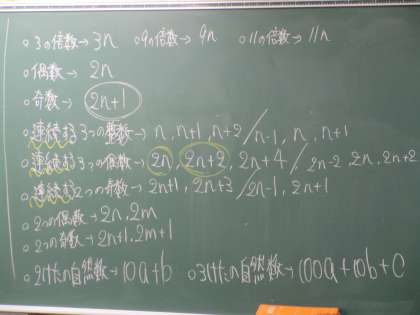 ○3の倍数→3n ○9の倍数→9n ○11の倍数→11n
○偶数→2n
○奇数→2n+1
○連続する3つの整数→n, n+1, n+2/n-1, n, n+1
○連続する3つの偶数→2n, 2n+2, 2n+4/2n-2, 2n, 2n+2
○連続する2つの奇数→2n+1, 2n+3/2n-1, 2n+1
○2つの偶数→2n, 2m
○2つの奇数→2n+1, 2m+1
○2けたの自然数→10a+b ○3けたの自然数→100a+10b+c